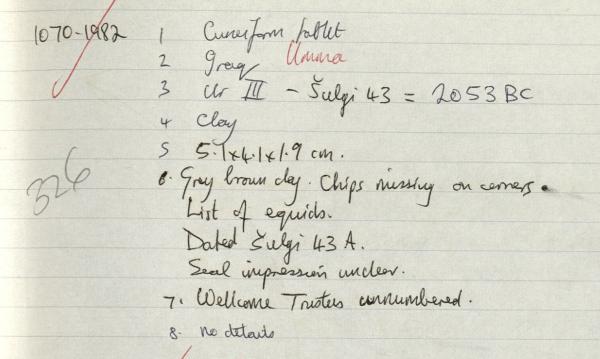 1070-1982 1 Cuneiform tablet
2 Iraq Umma
3 Ur III - Šulgi 43 = 2053 BC
4 Clay
5 5.1x4.1x1.9 cm.
326
6. Grey brown clay. Chips missing on corners.
List of equids.
Dated Šulgi 43 A.
Seal impression unclear.
7. Wellcome Trustees unnumbered.
8. no details